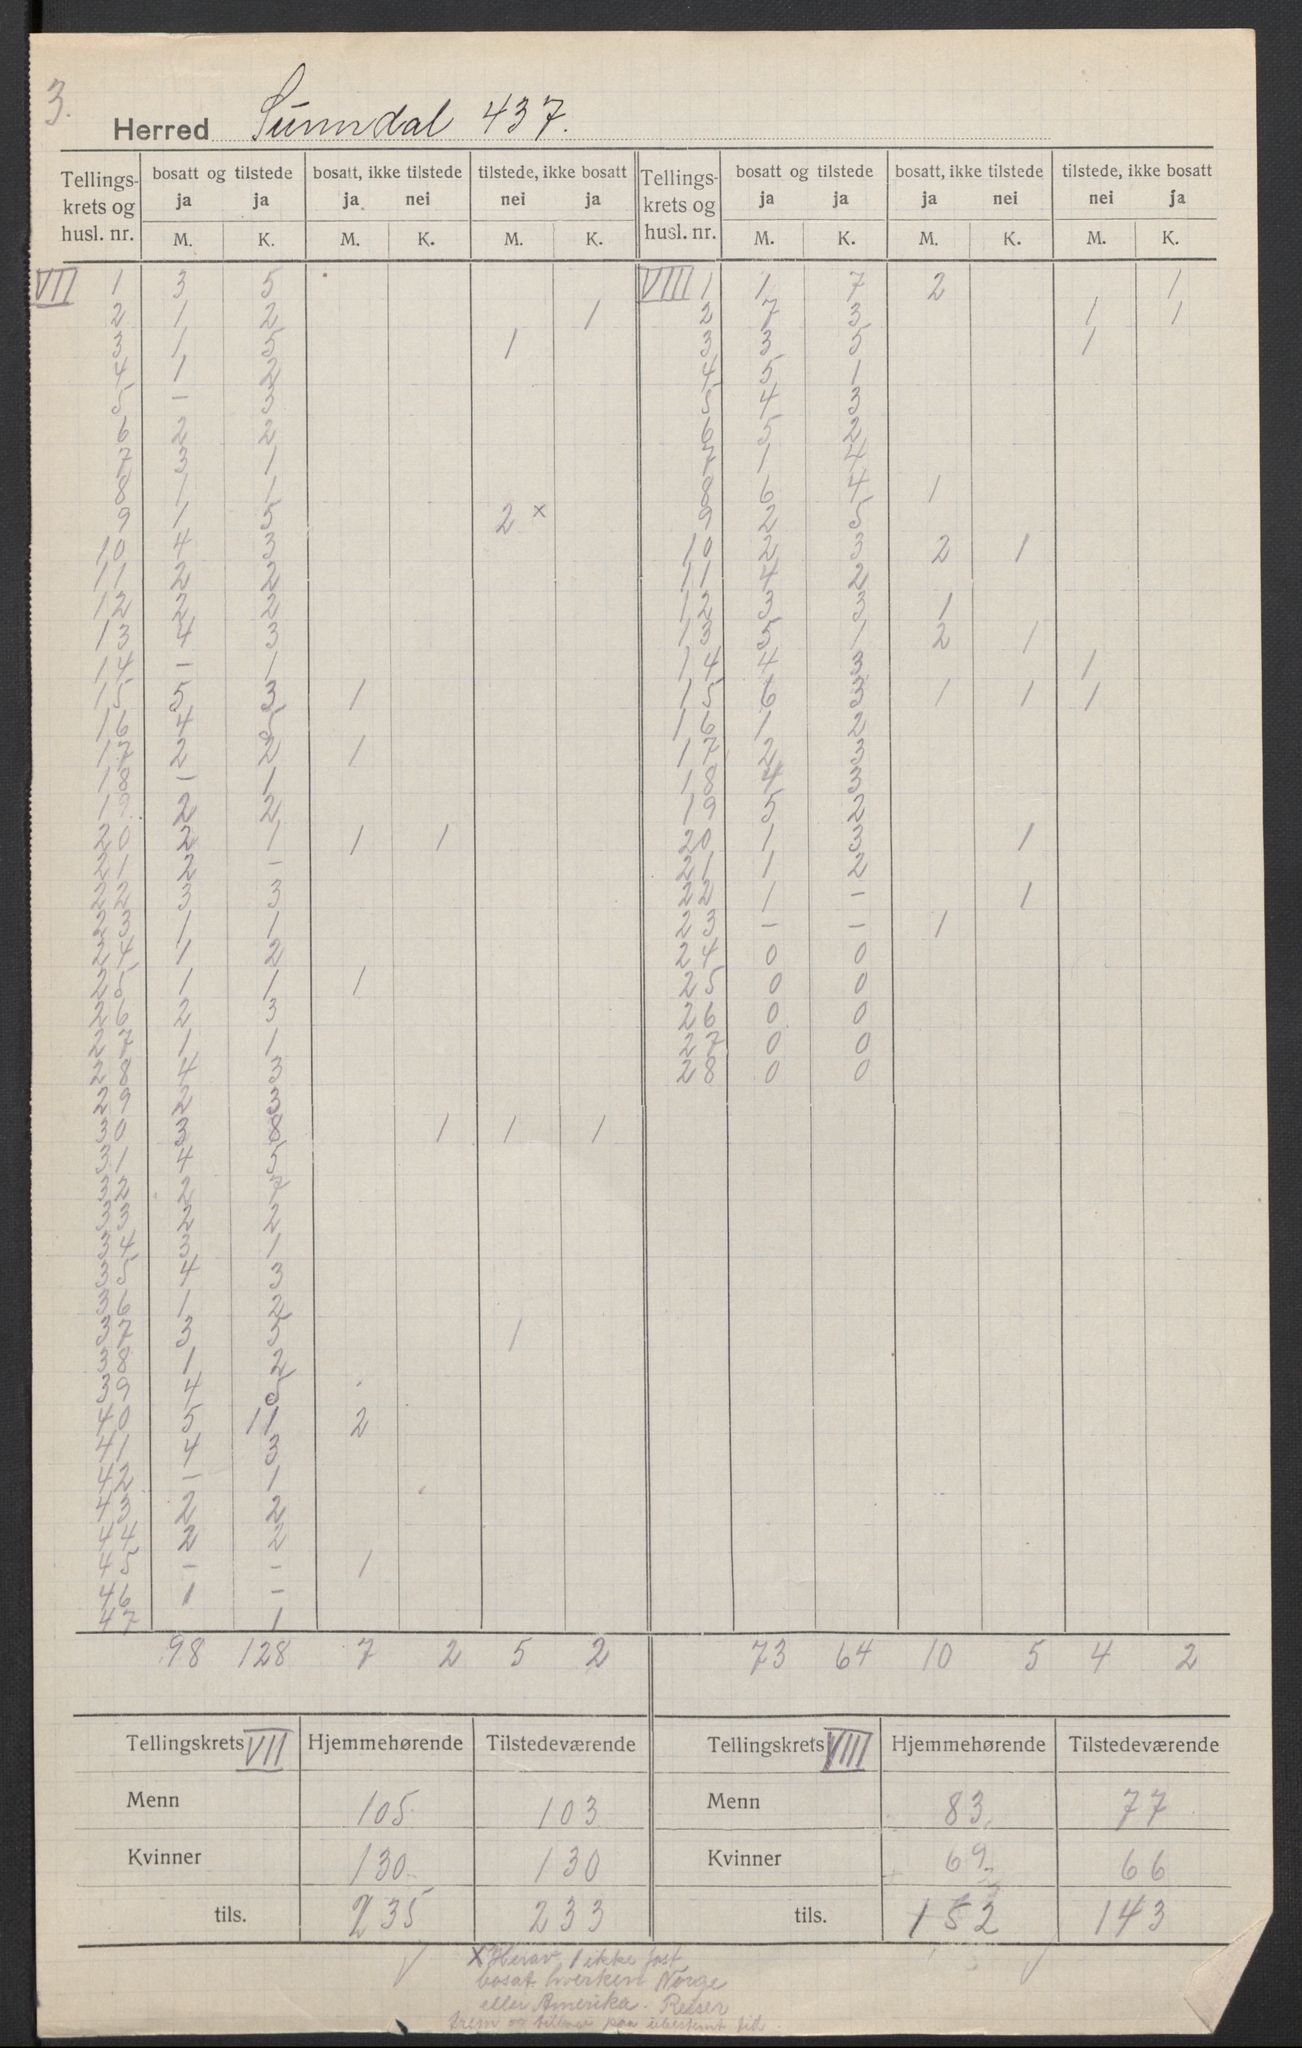 3.
Herred Sunndal 437.
Tellings- krets og husl. nr. | bosatt og tilstede ja ja | bosatt, ikke tilstede ja nei | tilstede, ikke bosatt nei ja | Tellings- krets og husl. nr. | bosatt og tilstede ja ja | bosatt, ikke tilstede ja nei | tilstede, ikke bosatt nei ja
M. K. M. K. M. K. M. K. M. K. M. K.
VII 1 3 5 VIII 1 1 7 2 1
2 1 2 1 2 7 3 1 1
3 1 5 1 3 3 5 1
4 1 2 4 5 1
5 - 3 5 4 3
6 2 2 6 5 2
7 3 1 7 1 4
8 1 1 8 6 4 1
9 1 5 2 x 9 2 5
10 4 3 10 2 3 2 1
11 2 2 11 4 2
12 2 2 12 3 3 1
13 4 3 13 5 1 2 1
14 - 1 14 4 3 1
15 5 3 1 15 6 3 1 1 1
16 4 5 16 1 2
17 2 2 1 17 2 3
18 - 1 18 4 3
19 2 2 19 5 2
20 2 1 1 1 20 1 3 1
21 2 - 21 1 2
22 3 3 22 1 - 1
23 1 1 23 - - 1
24 1 2 24 0 0
25 1 1 1 25 0 0
26 2 3 26 0 0
27 1 1 27 0 0
28 4 3 28 0 0
29 2 3
30 3 8 1 1 1
31 4 5
32 2 7
33 2 2
34 3 1
35 4 3
36 1 2
37 3 5 1
38 1 2
39 4 5
40 5 11 2
41 4 3
42 - 1
43 2 2
44 2 2
45 - - 1
46 1 -
47 1
98 128 7 2 5 2 73 64 10 5 4 2
Tellingskrets VII Hjemmehørende Tilstedeværende Tellingskrets VIII Hjemmehørende Tilstedeværende
Menn 105 103 Menn 83 77
Kvinner 130 130 Kvinner 69 66
tils. 235 233 tils. 152 143
x Herav 1 ikke fast
bosat hverken Norge
eller Amerika. Reiser
frem og tilbake paa ubestemt tid.